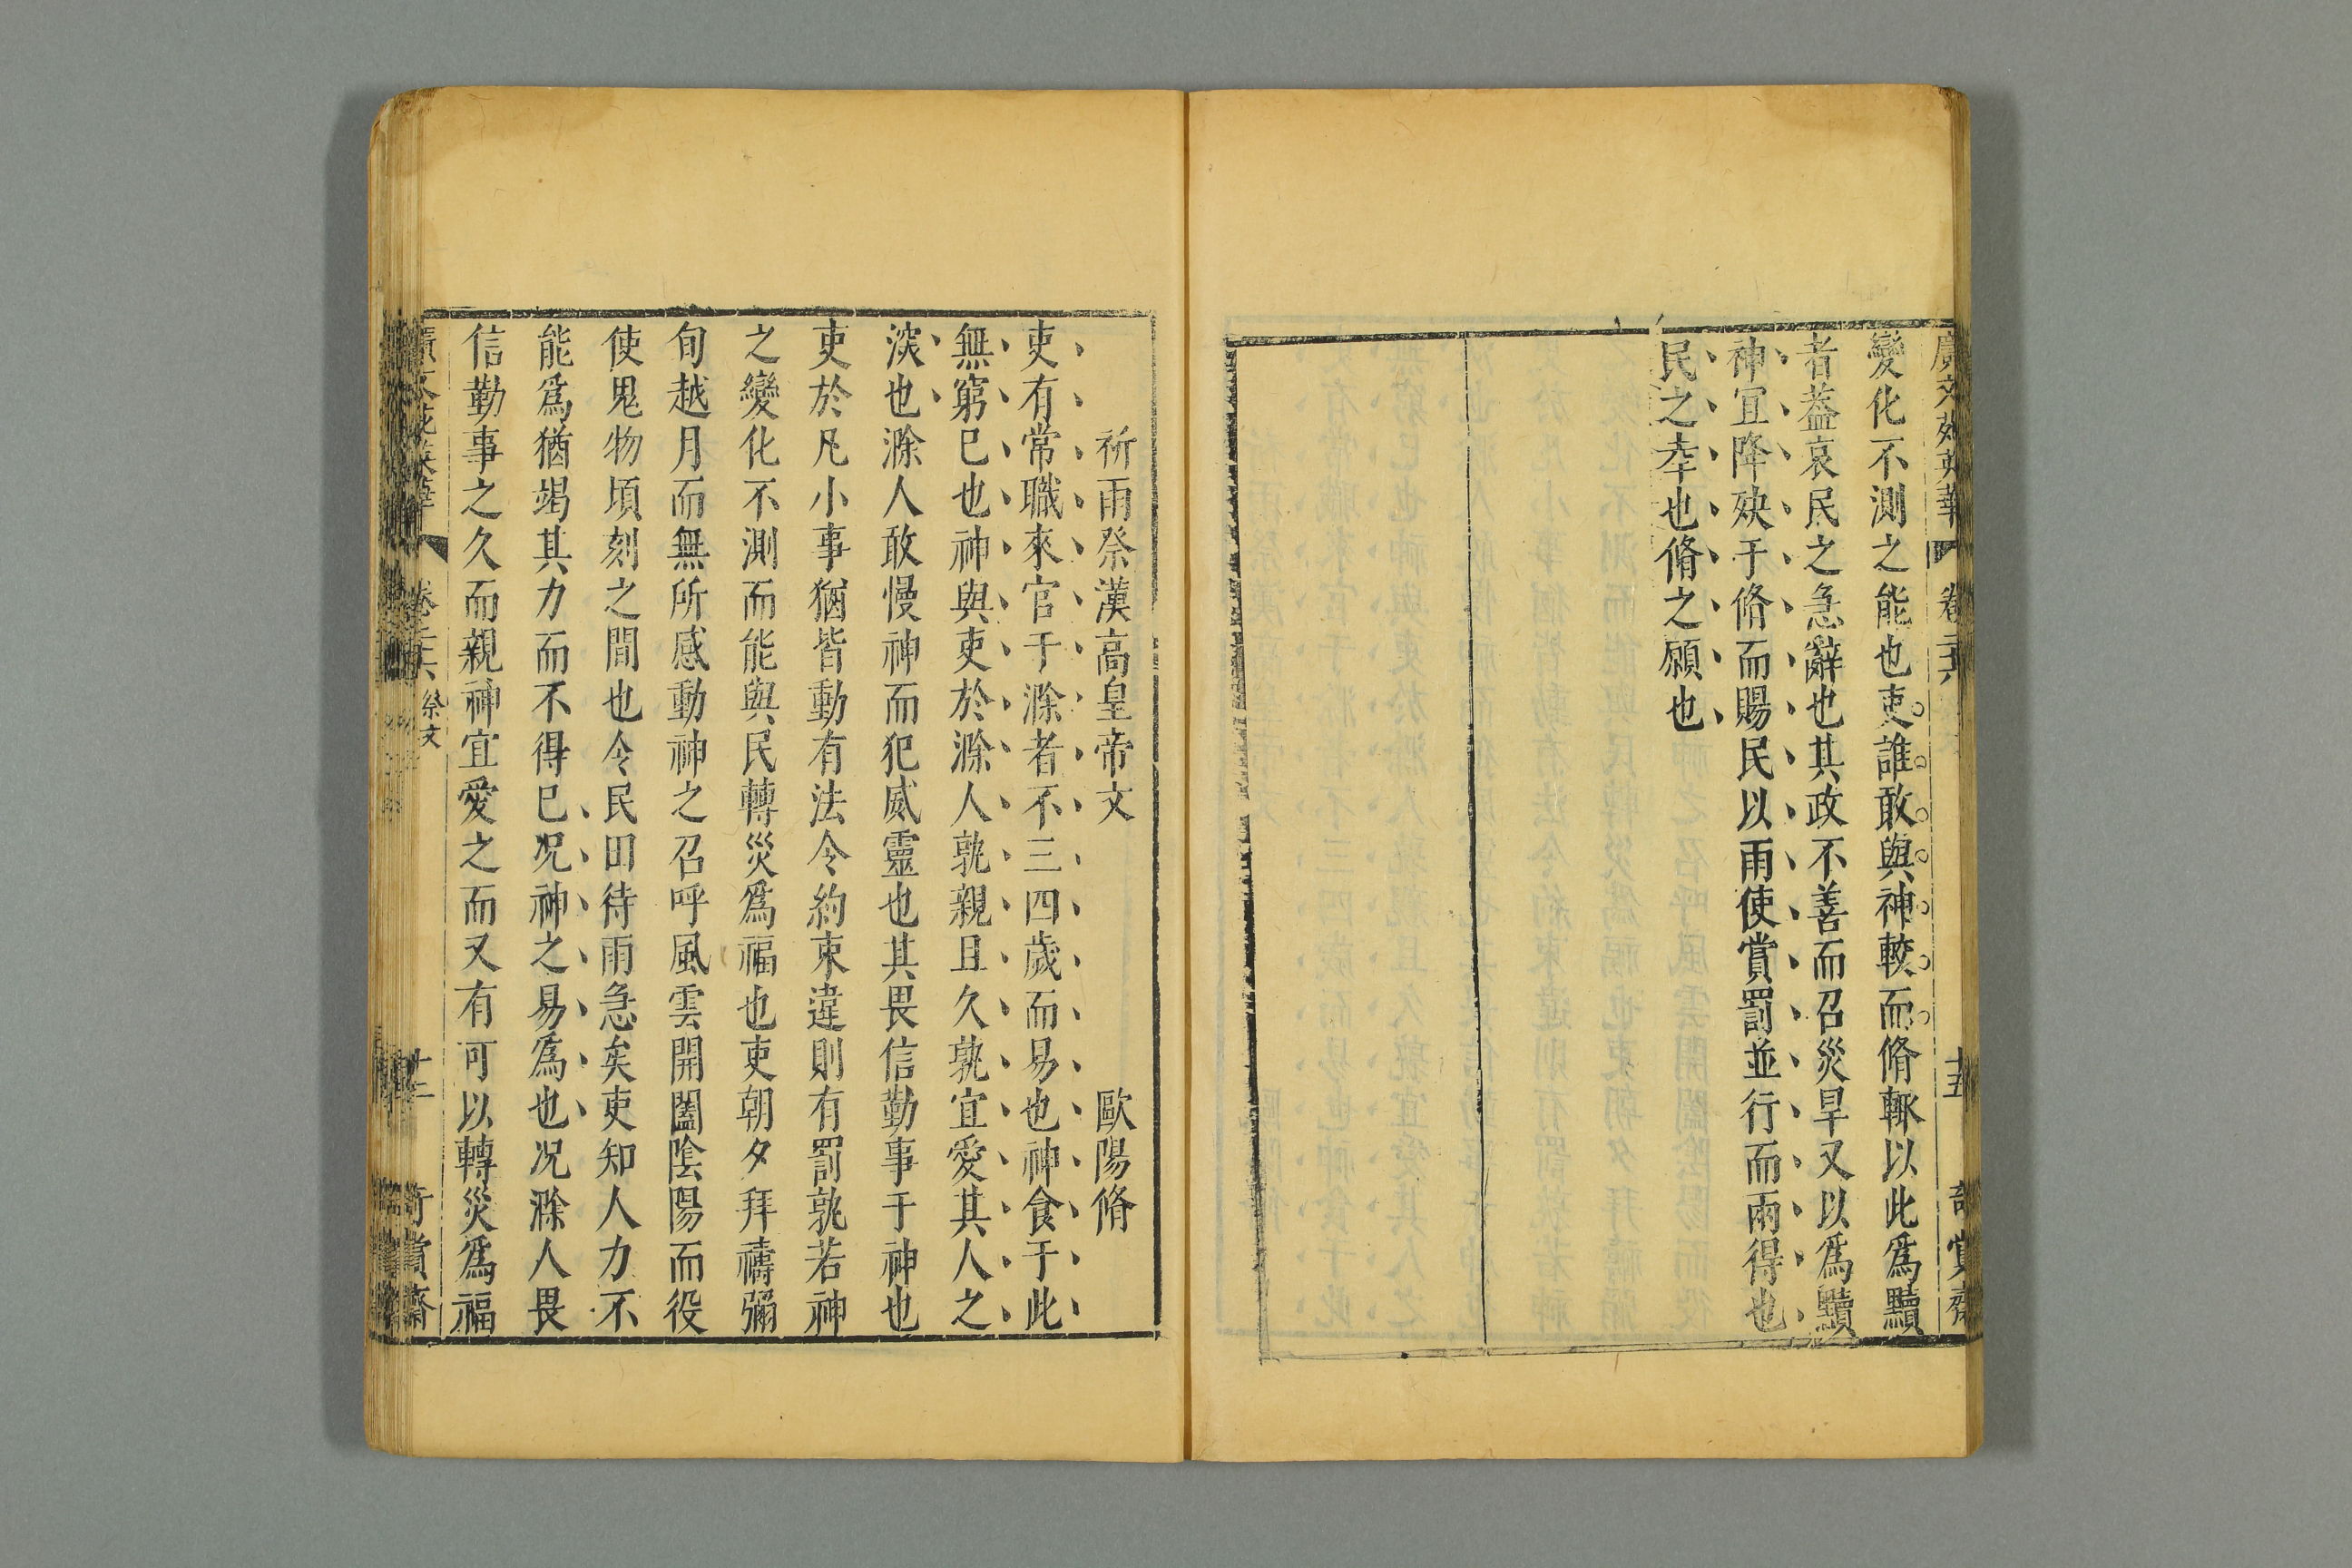 廣文苑英華 卷二十六 十五 奇賞齋
變化不測之能也吏誰敢與神較而脩輙以此爲黷
者葢哀民之急辭也其政不善而召災旱又以爲黷
神宜降殃于脩而賜民以雨使賞罰並行而兩得也
民之幸也脩之願也
祈雨祭漢高皇帝文 歐陽脩
吏有常職來官于滁者不三四歲而易也神食于此
無窮已也神與吏於滁人孰親且久孰宜愛其人之
深也滁人敢慢神而犯威靈也其畏信勤事于神也
吏於凡小事猶皆動有法令約束違則有罰孰若神
之變化不測而能與民轉災爲福也吏朝夕拜禱彌
旬越月而無所感動神之召呼風雲開闔陰陽而役
使鬼物頃刻之間也今民田待雨急矣吏知人力不
能爲猶竭其力而不得已况神之易爲也况滁人畏
信勤事之久而親神宜愛之而又有可以轉災爲福
廣文苑英華 卷二十六 祭文 奇賞齋